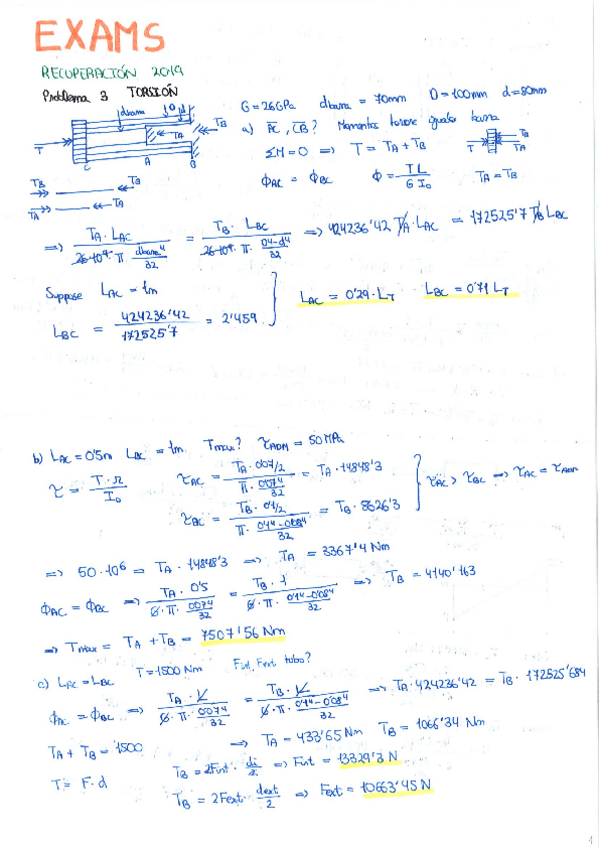 EXAMS
RECUPERACIÓN 2019
Problema 3 TORSIÓN
G = 26GPa dbarra = 70mm D = 100mm d = 80mm
dbarra D d
T TA TB
C A B
a) AC, CB? Momentos torsor iguales barra
ΣM = 0 => T = TA + TB
T TB TA
ΦAC = ΦBC Φ = TL / G I₀ TA = TB
TB TB
TA TA
=> TA · LAC / 26·10⁹ · π · dbarra⁴/32 = TB · LBC / 26·10⁹ · π · D⁴-d⁴/32 => 424236'42 TA · LAC = 172525'7 TB LBC
Suppose LAC = 1m
LBC = 424236'42 / 172525'7 = 2'459
LAC = 0'29 · LT LBC = 0'71 LT
b) LAC = 0'5m LBC = 1m Tmax? τADM = 50 MPa
τ = T · r / I₀
τAC = TA · 0'07/2 / π · 0'07⁴/32 = TA · 14848'3
τBC = TB · 0'1/2 / π · 0'1⁴-0'08⁴/32 = TB · 8626'3
τAC > τBC => τAC = τADM
=> 50·10⁶ = TA · 14848'3 => TA = 3367'4 Nm
ΦAC = ΦBC => TA · 0'5 / G · π · 0'07⁴/32 = TB · 1 / G · π · 0'1⁴-0'08⁴/32 => TB = 4140'163
=> Tmax = TA + TB = 7507'56 Nm
c) LAC = LBC T = 1500 Nm Fint, Fext tubo?
ΦAC = ΦBC => TA · L / G · π · 0'07⁴/32 = TB · L / G · π · 0'1⁴-0'08⁴/32 => TA · 424236'42 = TB · 172525'684
TA + TB = 1500 => TA = 433'65 Nm TB = 1066'34 Nm
T = F · d
TB = 2Fint · di/2 => Fint = 13329'3 N
TB = 2Fext · dext/2 => Fext = 10663'45 N
1